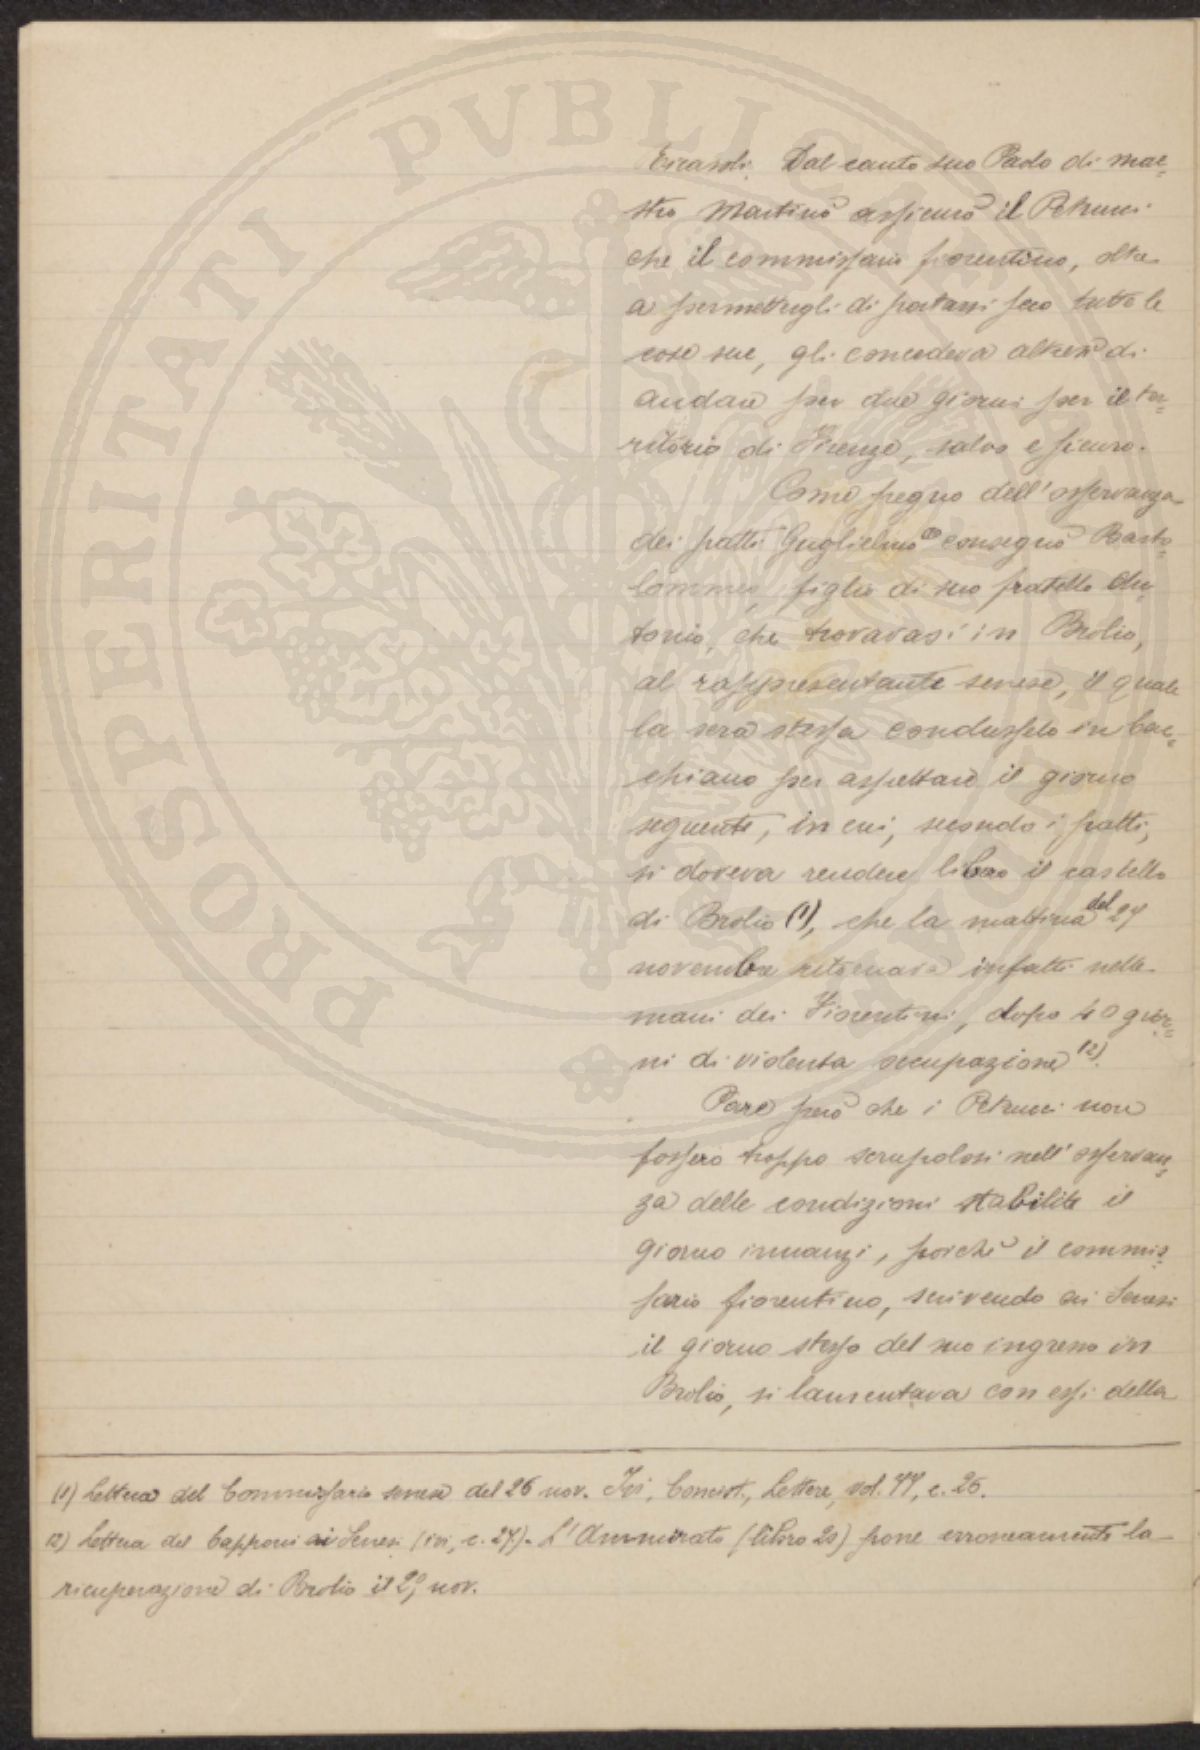 Ricasoli. Dal canto suo Paolo di mae=
stro Martino assicurò il Petrucci
che il commissario fiorentino, oltre
a permettergli di portarsi seco tutte le
cose sue, gli concedeva altresì di
andare per due giorni per il ter=
ritorio di Firenze, salvo e sicuro.
Come pegno dell'osservanza
dei patti Guglielmo consegnò Barto=
lommeo, figlio di suo fratello An=
tonio, che trovavasi in Brolio,
al rappresentante senese, il quale
la sera stessa condusselo in Cac=
chiano per aspettare il giorno
seguente, in cui, secondo i patti,
si doveva rendere libero il castello
di Brolio (1), che la mattina del 27
novembre ritornava infatti nelle
mani dei Fiorentini, dopo 40 gior=
ni di violenta occupazione (2).
Pare però che i Petrucci non
fossero troppo scrupolosi nell'osservan=
za delle condizioni stabilite il
giorno innanzi, poichè il commis=
sario fiorentino, scrivendo ai Senesi
il giorno stesso del suo ingresso in
Brolio, si lamentava con essi della
(1) Lettera del Commissario senese del 26 nov. Ivi, Concist., Lettere, vol. 77, c. 26.
(2) Lettera del Capponi ai Senesi (ivi, c. 27). L'Ammirato (libro 20) pone erroneamente la
ricuperazione di Brolio il 29 nov.
PROSPERITATI PVBLICAE